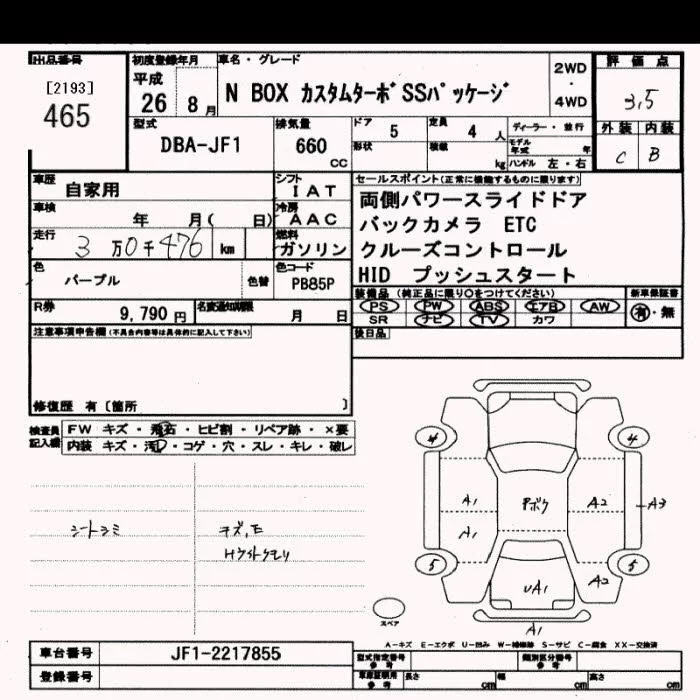 出品番号
[2193]
465
初度登録年月
平成
26 8 月
車名・グレード
N BOX カスタムターボSSパッケージ
2WD
・
4WD
評価点
3,5
外装 内装
C B
型式
DBA-JF1
排気量
660
cc
ドア 5
形状
定員 4 人
積載 kg
ディーラー・並行
モデル年式 年
ハンドル 左・右
車歴
自家用
車検
年 月( 日)
走行
3 万 0 千 476 km
シフト
I A T
冷房
A A C
燃料
ガソリン
セールスポイント(正常に機能するものに限ります)
両側パワースライドドア
バックカメラ ETC
クルーズコントロール
HID プッシュスタート
色
パープル
色替
色コード
PB85P
R券
9,790 円
名変通知期限
月 日
装備品(純正品に限り○をつけてください)
PS PW ABS エアB AW
SR ナビ TV カワ
新車保証書
有・無
後日品
注意事項申告欄(不具合内容等は具体的に記入して下さい)
修復歴 有〔箇所 〕
検査員
記入欄
FW キズ・飛石・ヒビ割・リペア跡・×要
内装 キズ・汚れ・コゲ・穴・スレ・キレ・破レ
シートシミ
キズ,E
Hライトクモリ
4 4
A1 Pボク A2 A3
A1
5 5
UA1 A2
スペア
A1
A-キズ E-エクボ U-凹み W-補修跡 S-サビ C-腐食 XX-交換済
車台番号
JF1-2217855
登録番号
型式指定番号
参考
類別区分番号
参考
車庫証明用
参考
長さ cm
幅 cm
高さ cm